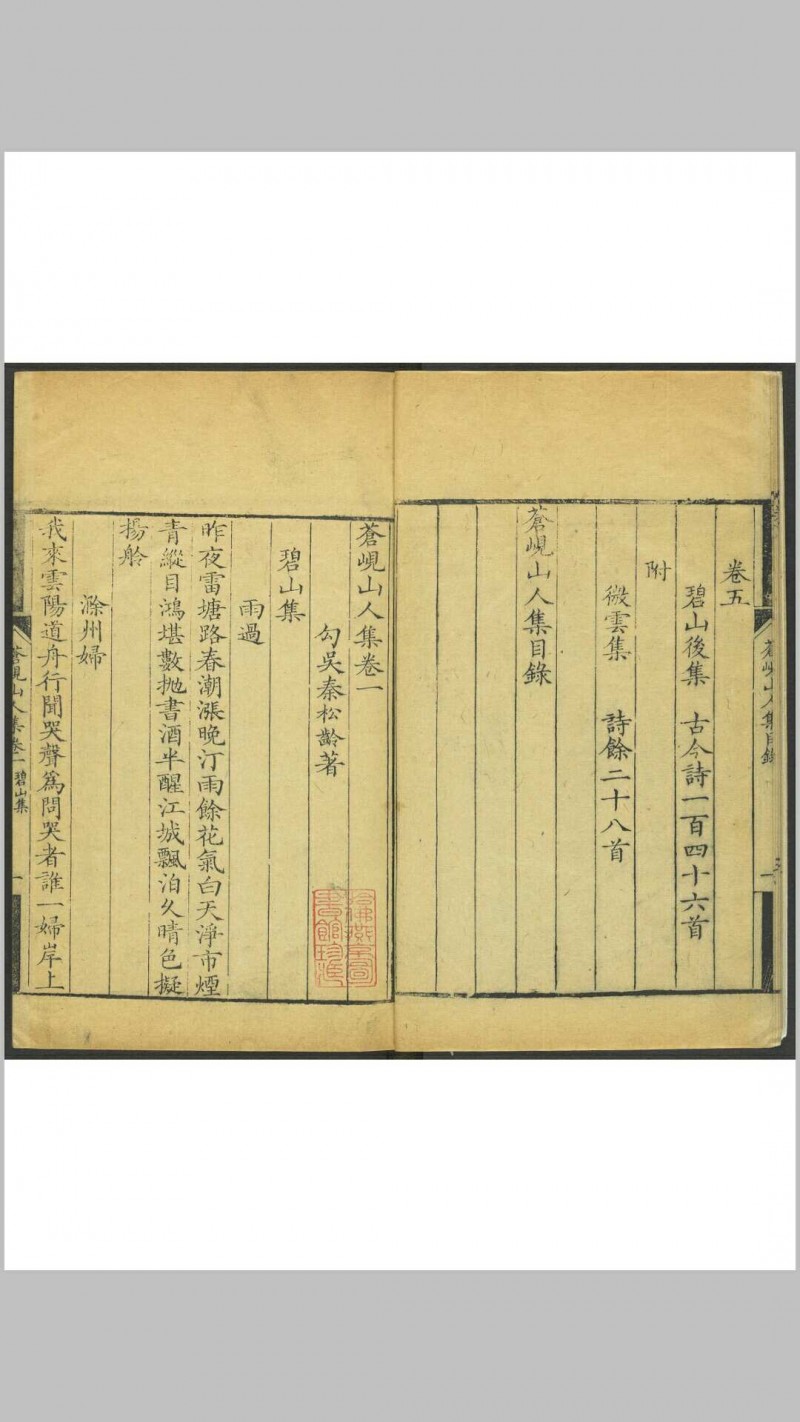 蒼峴山人集目錄
卷五
碧山後集　古今詩一百四十六首
附
微雲集　詩餘二十八首
蒼峴山人集目錄
蒼峴山人集卷一
勾吳秦松齡著
碧山集
雨過
昨夜雷塘路春潮漲晚汀雨餘花氣白天淨市煙
青縱目鴻堪數拋書酒半醒江城飄泊久晴色擬
揚舲
滁州婦
我來雲陽道舟行聞哭聲爲問哭者誰一婦岸上
蒼峴山人集卷一　碧山集　一